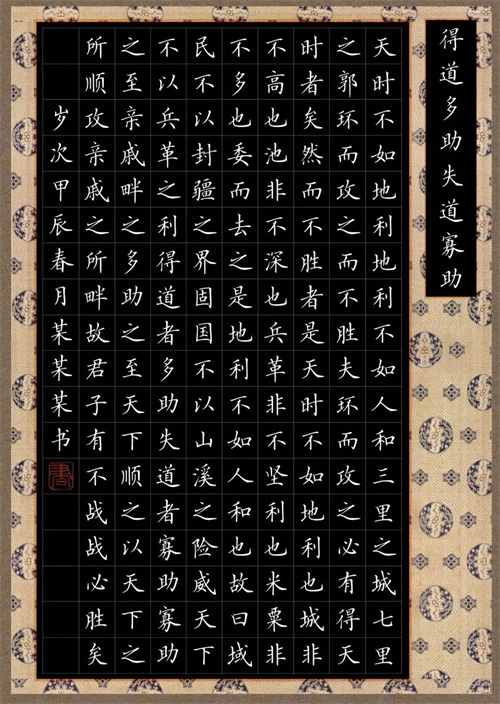 得道多助失道寡助
天时不如地利地利不如人和三里之城七里
之郭环而攻之而不胜夫环而攻之必有得天
时者矣然而不胜者是天时不如地利也城非
不高也池非不深也兵革非不坚利也米粟非
不多也委而去之是地利不如人和也故曰域
民不以封疆之界固国不以山溪之险威天下
不以兵革之利得道者多助失道者寡助寡助
之至亲戚畔之多助之至天下顺之以天下之
所顺攻亲戚之所畔故君子有不战战必胜矣
岁次甲辰春月某某某书
書